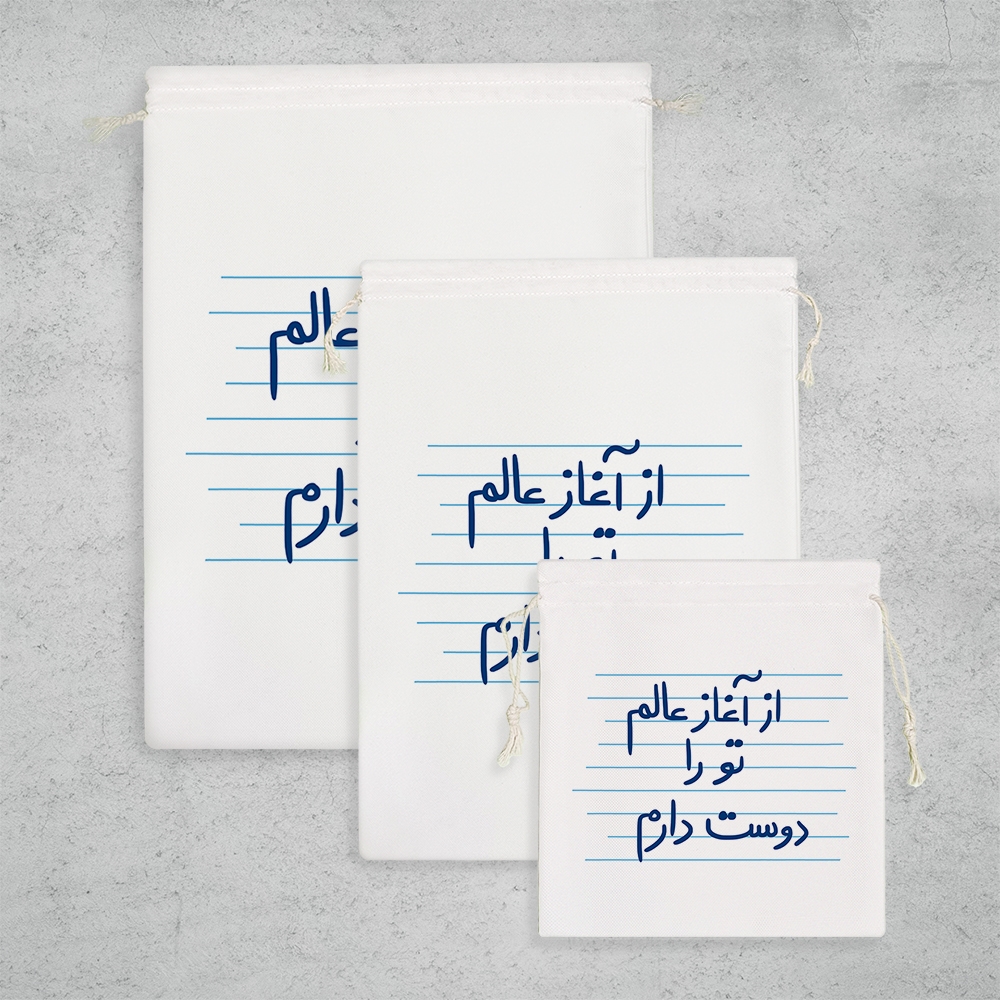 عالم
دارم
از آغاز عالم
تو را
دارم
از آغاز عالم
تو را
دوست دارم